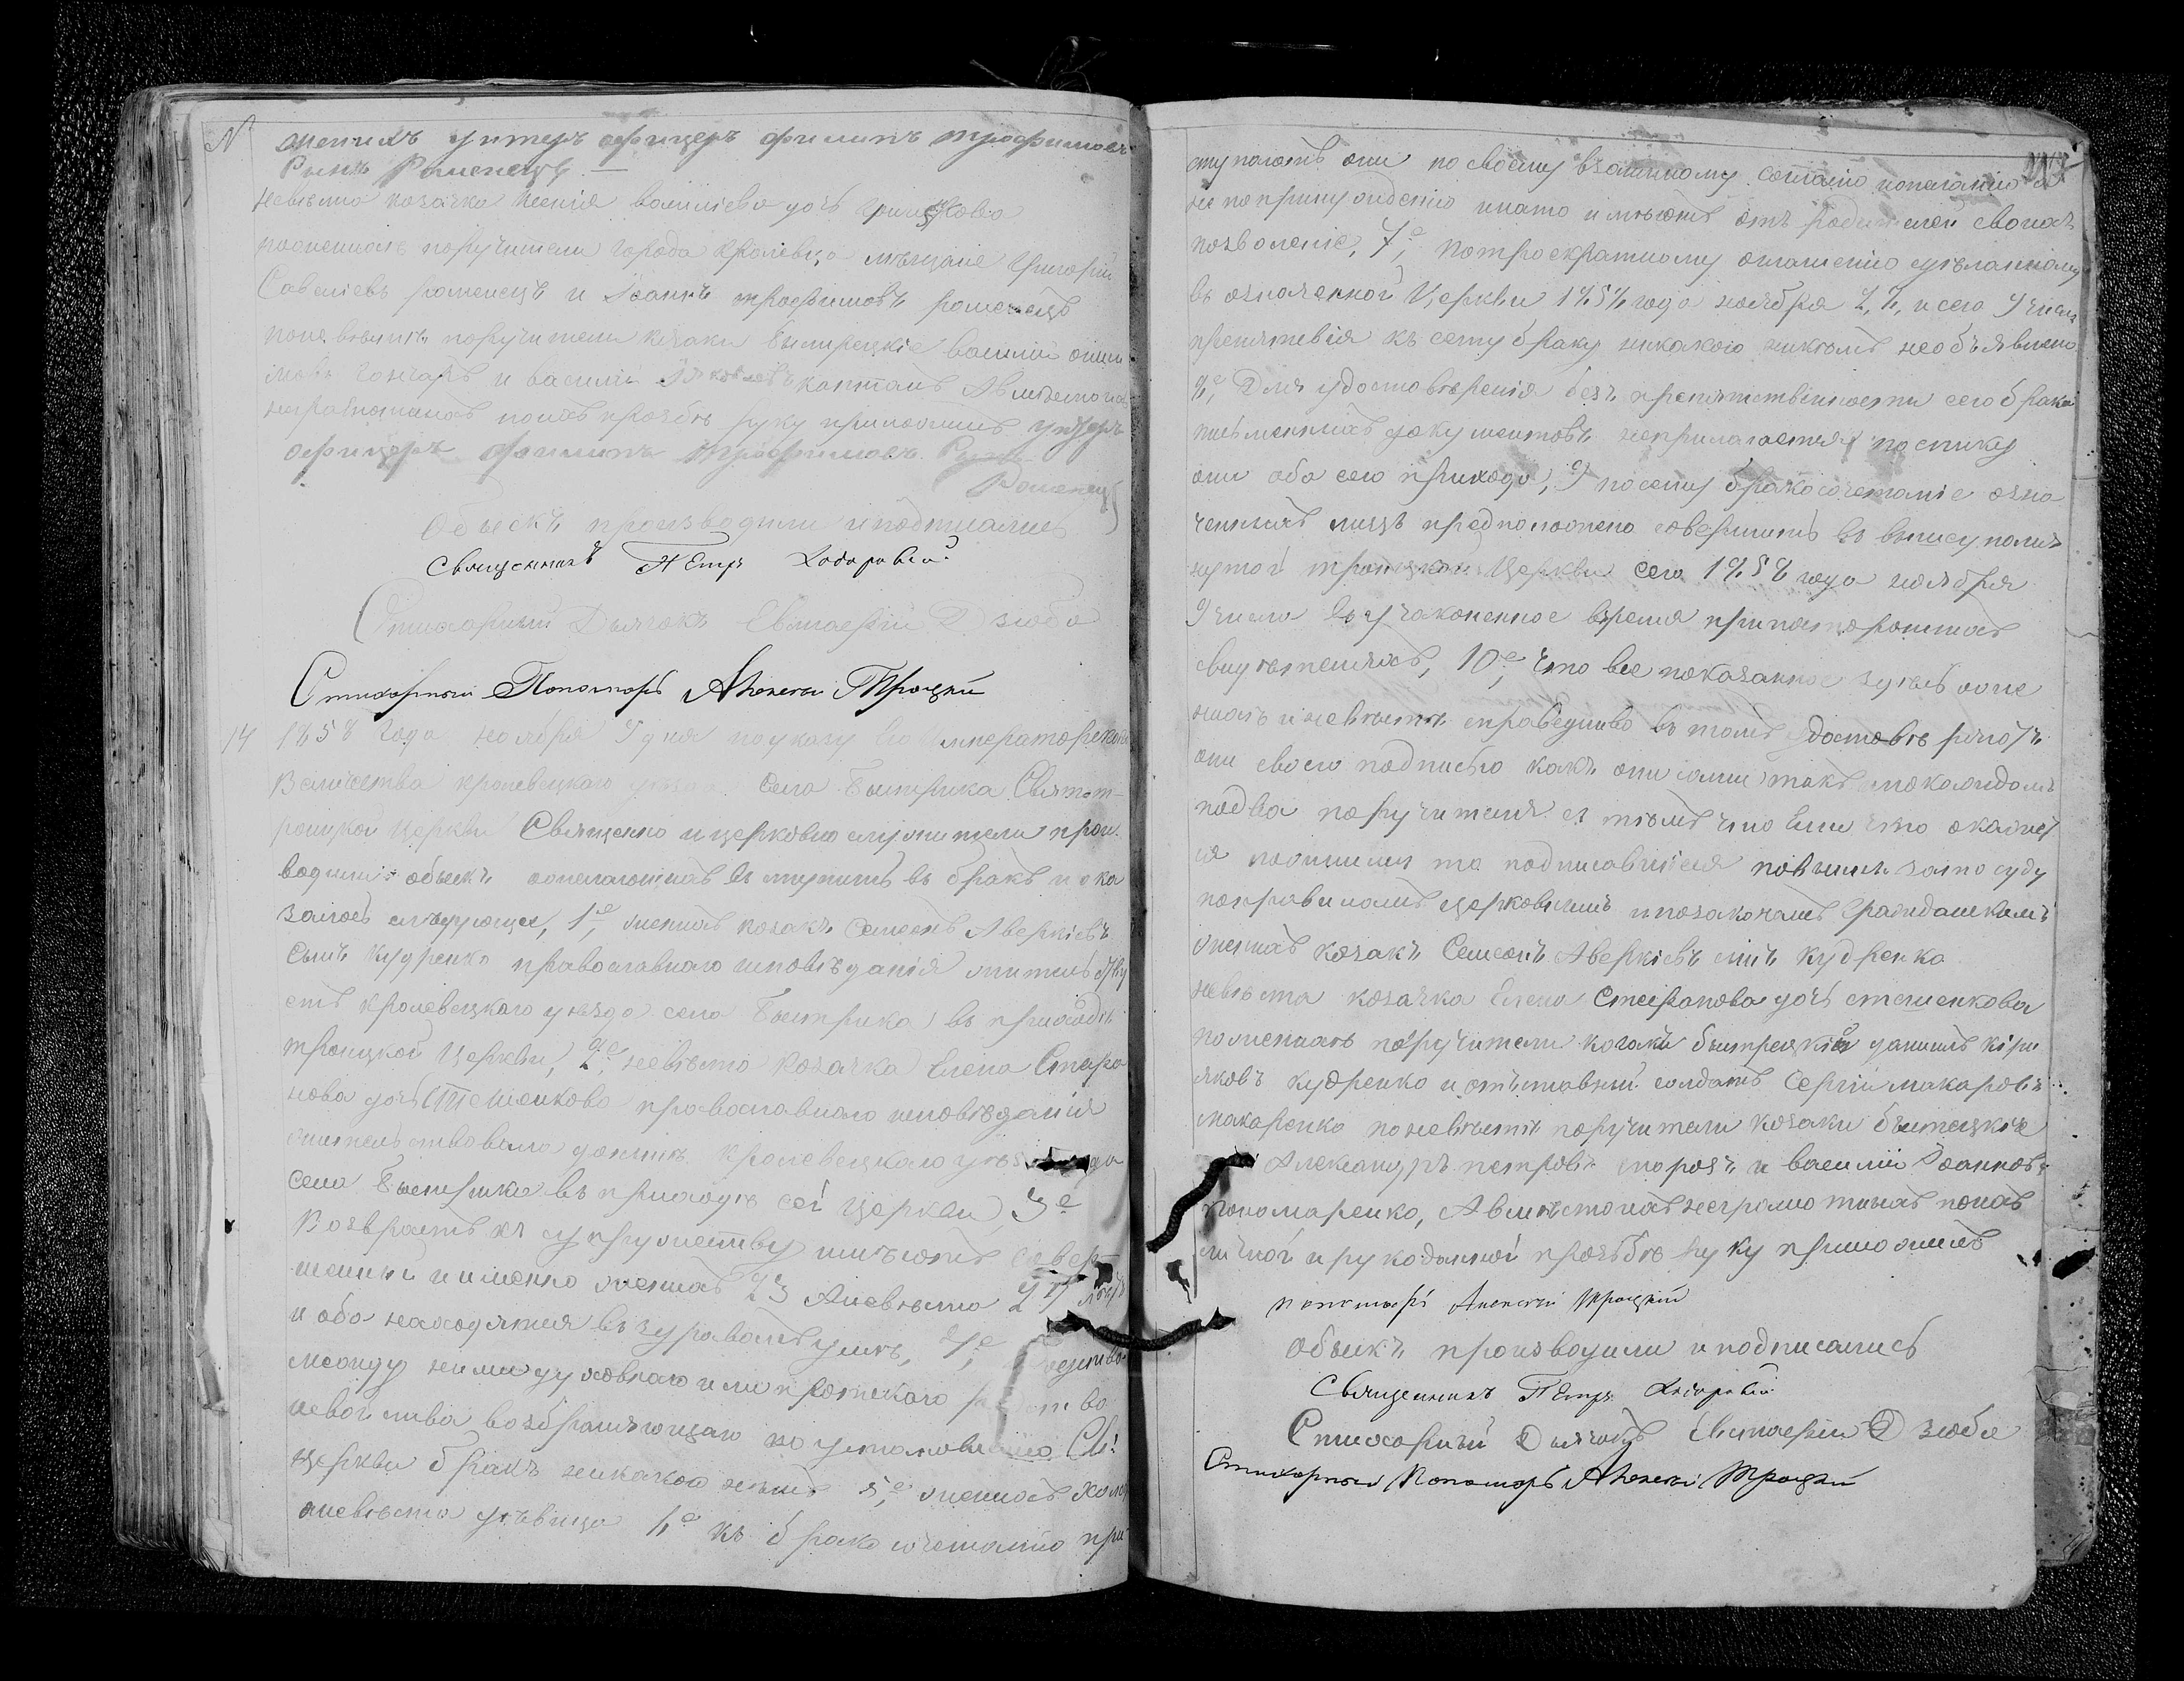 N женихъ унтеръ офицеръ филипъ трофимовъ
Сынъ Роменецъ. —
невѣста козачка Ксенія василіева дочь
по женихѣ поручители города кролевца мѣщане Григорій
Савеліевъ роменецъ и Іоаннъ трофимовъ роменецъ
по невѣстѣ поручители козаки быстрецкіе василій
гончаръ и василій Яковлевъ
неграмотныхъ по ихъ прозбѣ руку приложилъ унтеръ
офицеръ филипъ трофимовъ
Роменецъ
Обыскъ производили и подписались
Священникъ Петръ Ходоровскій
Стихарный Дьячокъ Евстафій Дзюба
Стихарный Пономарь Алексей Троцкий
14 1858 года ноября 9 дня по указу Его Императорскаго
Величества кролевецкаго уѣзда Села Быстрика Святот-
роицкой Церкви Священно и церковно служители произ-
водили обыскъ о желающихъ вступить въ бракъ и ока
залось слѣдующее, 1е, женихъ козакъ Семеонъ Аверкіевъ
Сынъ Кудренко православнаго исповѣданія жительству
етъ кролевецкаго уѣзда села Быстрика въ приходѣ
троицкой Церкви, 2е, невѣста козачка Елена Стефа
нова дочь Стешенкова православнаго исповѣданія
жительствовала донынѣ кролевецкаго уѣзда
села Быстрика въ приходѣ сей Церкви, 3е
Возрастъ къ супружеству имѣютъ совер-
шенный и именно женихъ 23 а невѣста лѣтъ
и оба находятся въ здравомъ умѣ, 4е, родства
между ними духовнаго или плотскаго родства
и свойства возбраняющаго по установленію Св:
Церкви бракъ никакого нѣтъ 5е, женихъ холостъ
а невѣста дѣвица 6е къ бракосочетанію при
ступаютъ они по своему взаимному согласію и желанію а
не по принужденію и на то имѣютъ отъ родителей своихъ
позволеніе, 7е, по троекратному оглашенію сдѣланному
въ означенной Церкви 1858 года ноября 2, и сего 9 числа
препятствія къ сему браку никакого никемъ не объявлено
8е, Для удостовѣренія безъ препятственности сего брака
письменныхъ документовъ не прилагается поелику
они оба сего прихода, 9 посему бракосочетаніе озна
ченныхъ лицъ предположено совершить въ вышеупомя
нутой троицкой Церкви сего 1858 года ноября
9 числа въ узаконенное время при постороннихъ
свидѣтеляхъ, 10е, что все показанное здѣсь о же
нихѣ и невѣстѣ справедливо въ томъ удостовѣряютъ
они своею подписью какъ они сами такъ и по каждомъ
по два поручителя съ тѣмъ что если что окажет
ся ложнымъ то подписавшіеся повинны за то суду
по правиламъ церковнымъ и по законамъ гражданскимъ
женихъ козакъ Семеонъ Аверкіевъ сынъ Кудренко
невѣста козачка Елена Стефанова дочь стешенкова
по женихѣ поручители козаки быстрецкій даніилъ кири
яковъ кудренко и отставный солдатъ Сергій макаровъ
макаренко по невѣстѣ поручители козаки быстрецкіе
Александръ петровъ морозъ и василій Іоанновъ
пономаренко, А вмѣсто ихъ неграмотныхъ по ихъ
личной и рукоданной прозьбѣ руку приложилъ
пономарь Алексей Троцкий
обыскъ производили и подписались
Священникъ Петръ Ходоровскій
Стихарный Дьячокъ Евстафій Дзюба
Стихарный Пономарь Алексей Троцкий